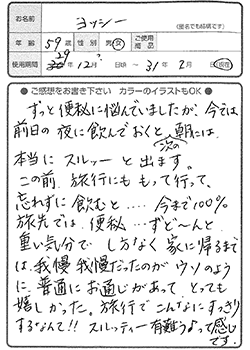 お名前 ヨッシー (匿名でも結構です)
年齢 59歳 性別 男・女 ご使用商品
使用期間 30年12月 日頃〜31年2月 日(現在)
●ご感想をお書き下さい カラーのイラストもOK●
ずっと便秘に悩んでいましたが、今では
前日の夜に飲んでおくと、次の朝には、
本当にスルッーと出ます。
この前、旅行にももって行って、
忘れずに飲むと‥‥今まで100%
旅先では、便秘…ずど〜んと
重い気分で しかたなく 家に帰るまで
は、我慢 我慢だったのがウソのよう
に、普通にお通じがあって とっても
嬉しかった。旅行でこんなにすっきり
するなんて!! スルッティー有難うよって感じ
です。